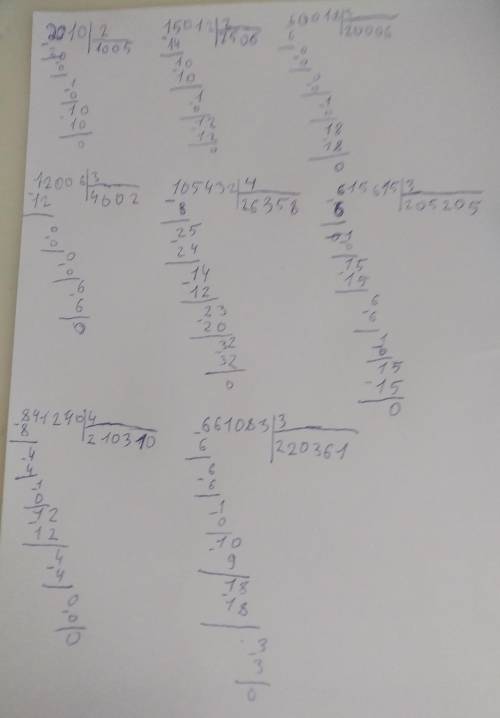 2010 2
1005
2
0
0
1
0
10
10
0
15012 2
7506
14
10
10
1
0
12
12
0
60018 3
20006
6
0
0
0
0
1
0
18
18
0
12006 3
4002
12
0
0
0
0
6
6
0
105432 4
26358
8
25
24
14
12
23
20
32
32
0
615615 3
205205
6
01
0
15
15
6
6
1
0
15
15
0
841240 4
210310
8
4
4
1
0
12
12
4
4
0
0
0
661083 3
220361
6
6
6
1
0
10
9
18
18
3
3
0